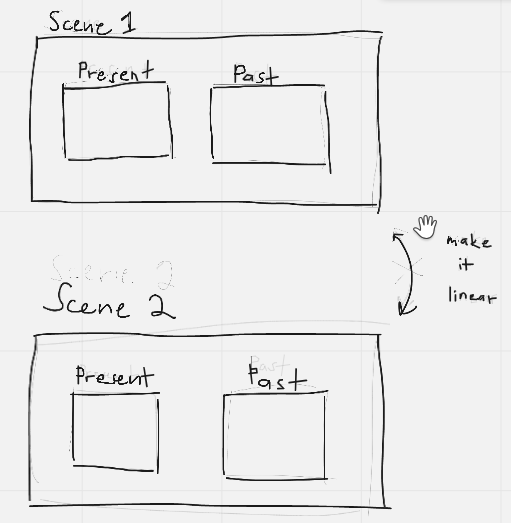 Scene 1
Present Past
make
it
linear
Scene 2
Scene 2
Present Past